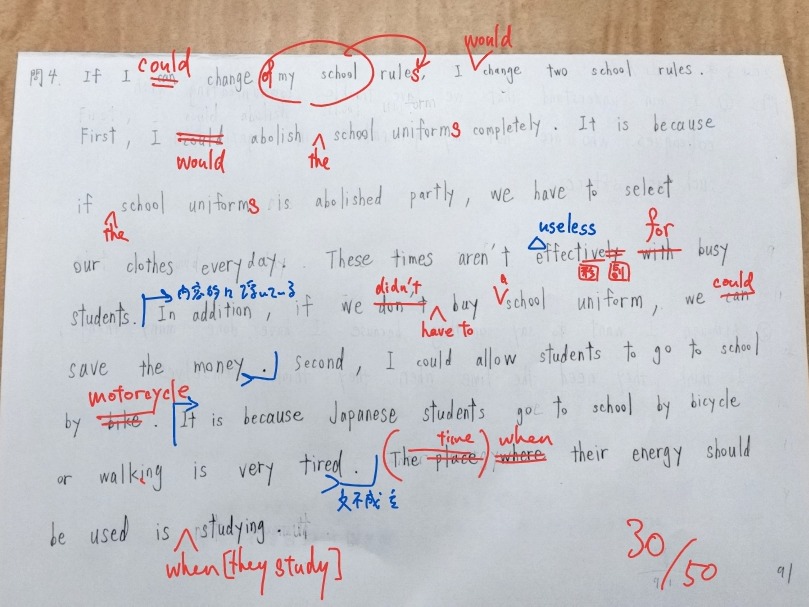 could would
問4. If I can change of my school rules, I change two school rules.
First, I could abolish school uniforms completely. It is because
would the
if school uniforms is abolished partly, we have to select
the useless for
our clothes everyday. These times aren't effectively with busy
形 副
students. In addition, if we don't buy school uniform, we can
didn't a could
have to
save the money. Second, I could allow students to go to school
motorcycle
by bike. It is because Japanese students go to school by bicycle
time when
or walking is very tired. (The place) where their energy should
文不成立
be used is studying.
when [they study]
30/50
91